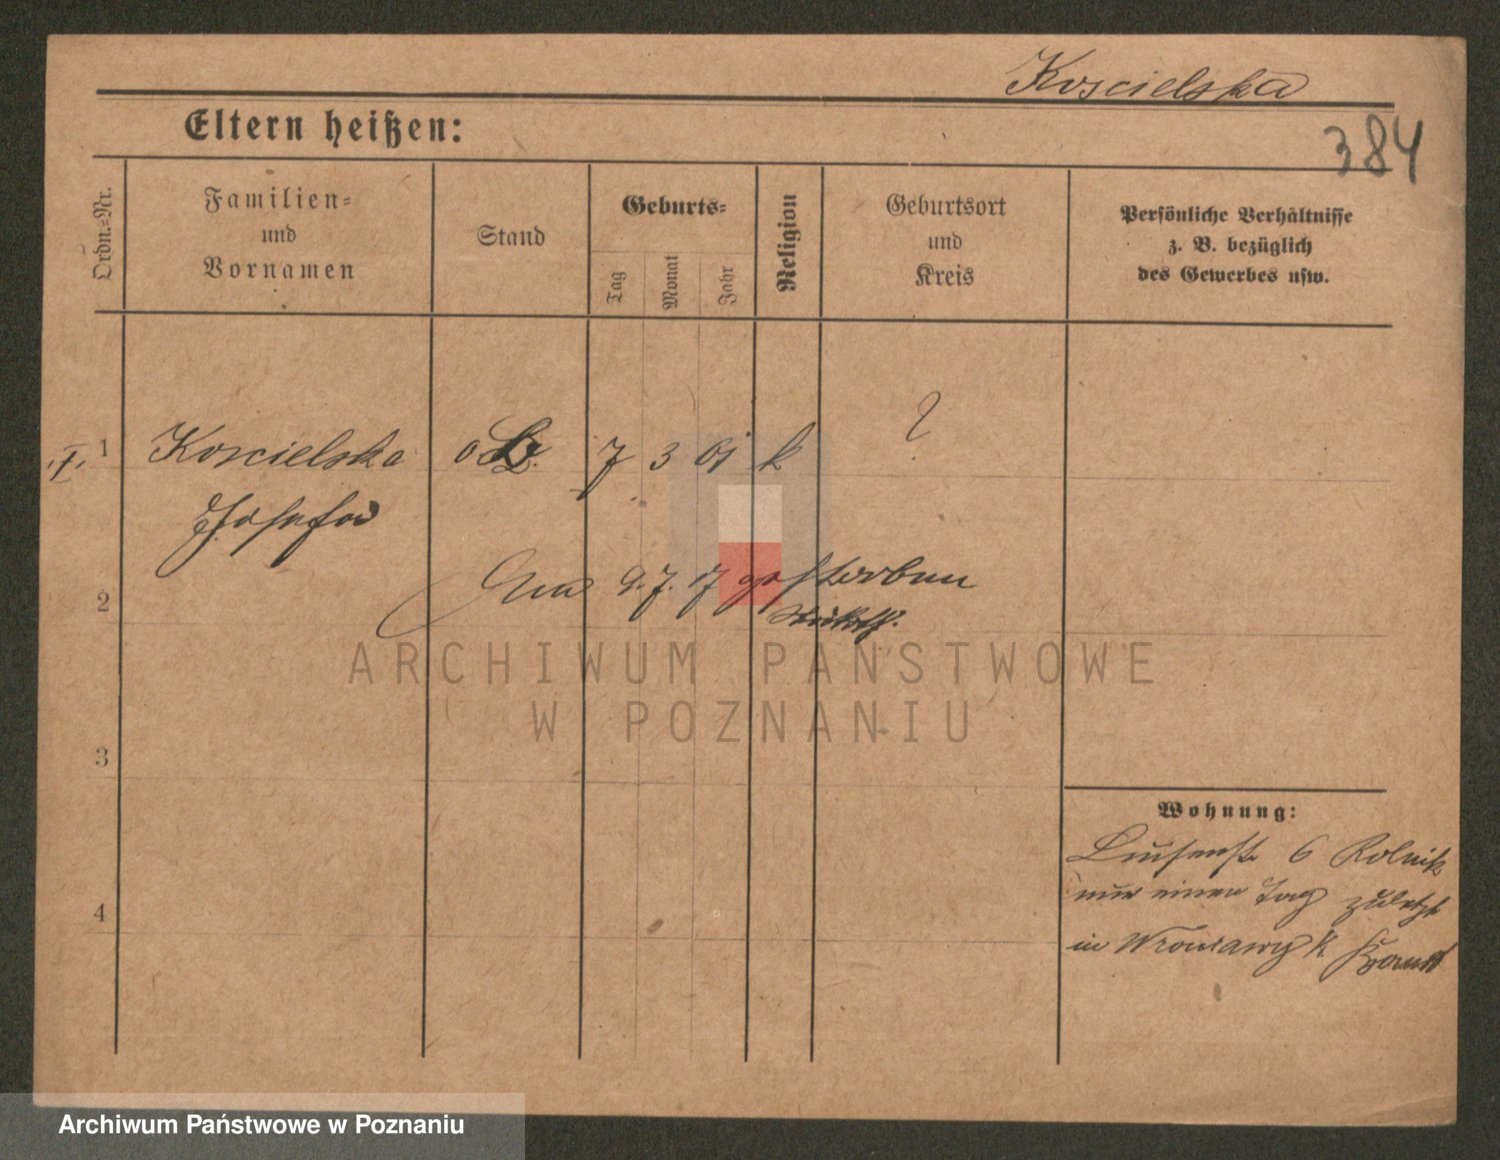 Koscielska
Eltern heißen:
384
Ordn.-Nr.
Familien-
und
Vornamen
Stand
Geburts-
Tag
Monat
Jahr
Religion
Geburtsort
und
Kreis
Persönliche Verhältnisse
z. B. bezüglich
des Gewerbes usw.
I. 1 Koscielska 7 3 01 k ?
Josefa
2 Am 9. 7. 17 gestorben
ARCHIWUM PAŃSTWOWE
W POZNANIU
3
Wohnung:
Luisenstr 6 Rolnik
nur einen Tag zuletzt
4
in
Archiwum Państwowe w Poznaniu